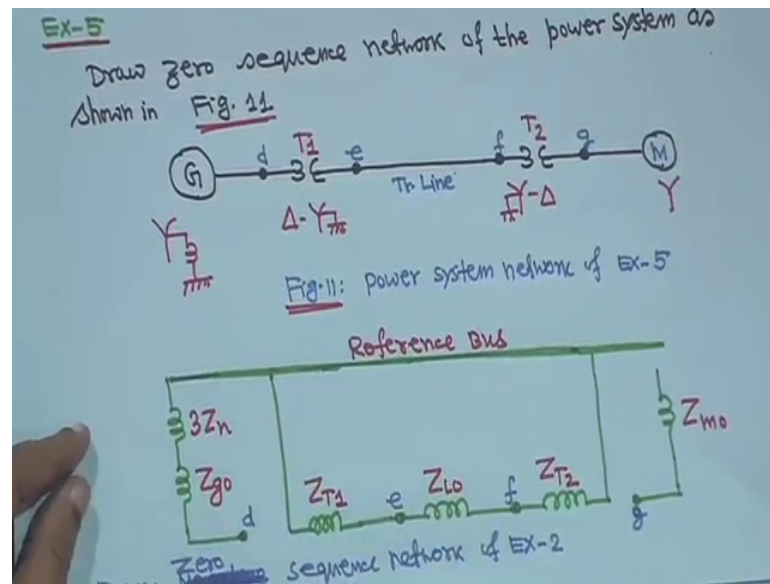 Ex-5
Draw zero sequence network of the power system as
shown in Fig. 11
T1 T2
d e f g
G M
Tr. Line
Δ-Y Y-Δ Y
Y
Fig.11: power system network of EX-5
Reference Bus
3Zn
Zmo
Zgo
ZT1 e ZL0 f ZT2
d g
Zero sequence network of EX-2